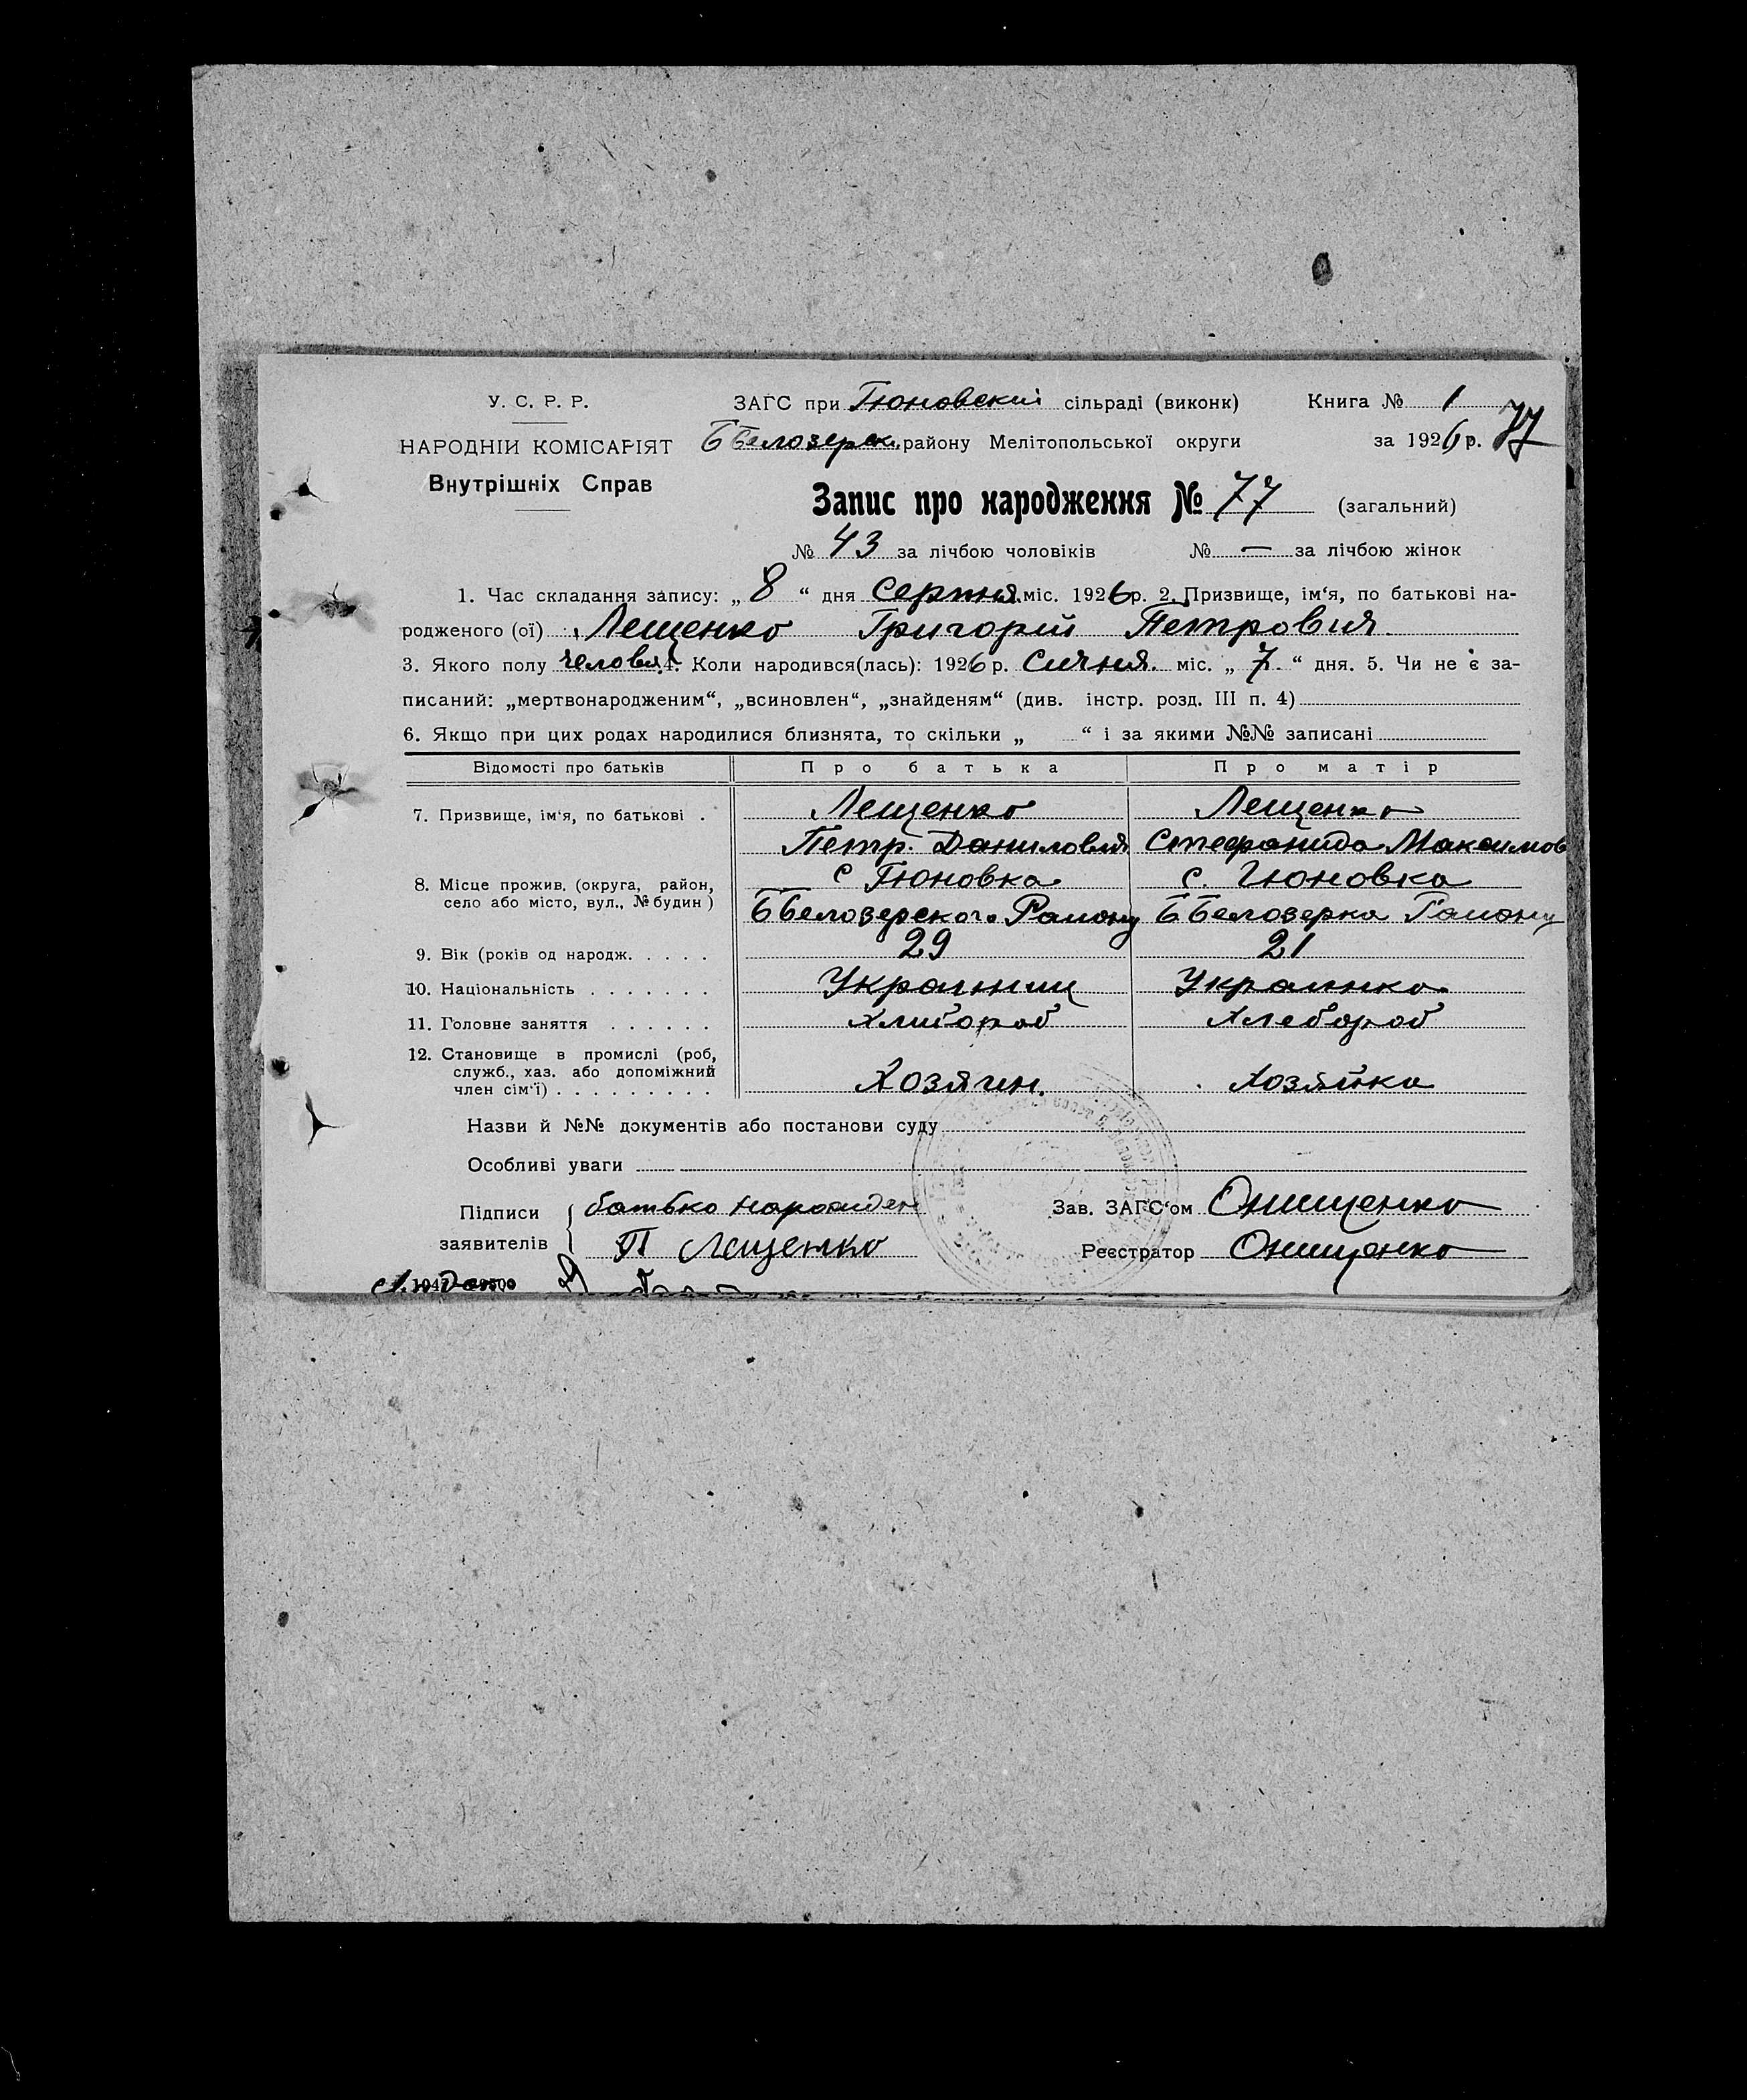 У. С. Р. Р.
НАРОДНІЙ КОМІСАРІЯТ
Внутрішніх Справ
ЗАГС при Гюновскій сільраді (виконк) Книга № 1
ББелозерск. району Мелітопольської округи за 1926 р. 77
Запис про народження № 77 (загальний)
№ 43 за лічбою чоловіків № — за лічбою жінок
1. Час складання запису: „ 8 “ дня Серпня. міс. 1926 р. 2. Призвище, ім‘я, по батькові на-
родженого (ої) Лещенко Григорій Петровия.
3. Якого полу человч. 4. Коли народився(лась): 1926 р. Сичня. міс. „ 7. “ дня. 5. Чи не є за-
писаний: „мертвонародженим“, „всиновлен“, „знайденям“ (див. інстр. розд. III п. 4)
6. Якщо при цих родах народилися близнята, то скільки „ “ і за якими №№ записані
Відомості про батьків Про батька Про матір
7. Призвище, ім‘я, по батькові . Лещенко Лещенко
Петр. Данилович Стефанида Максимов
8. Місце прожив. (округа, район, с Гюновка с. Гюновка
село або місто, вул., № будин ) ББелозерского Району ББелозерка Району
9. Вік (років од народж. . . . . 29 21
10. Національність . . . . . . . Украинец Украинка
11. Головне заняття . . . . . . Хлибороб Хлебороб
12. Становище в промислі (роб,
служб., хаз. або допоміжний
член сім‘ї) . . . . . . . . . Хозягин. Хозяйка
Назви й №№ документів або постанови суду
Особливі уваги
Підписи батько народжен Зав. ЗАГС‘ом Онищенко
заявителів П Лещенко Реєстратор Онищенко